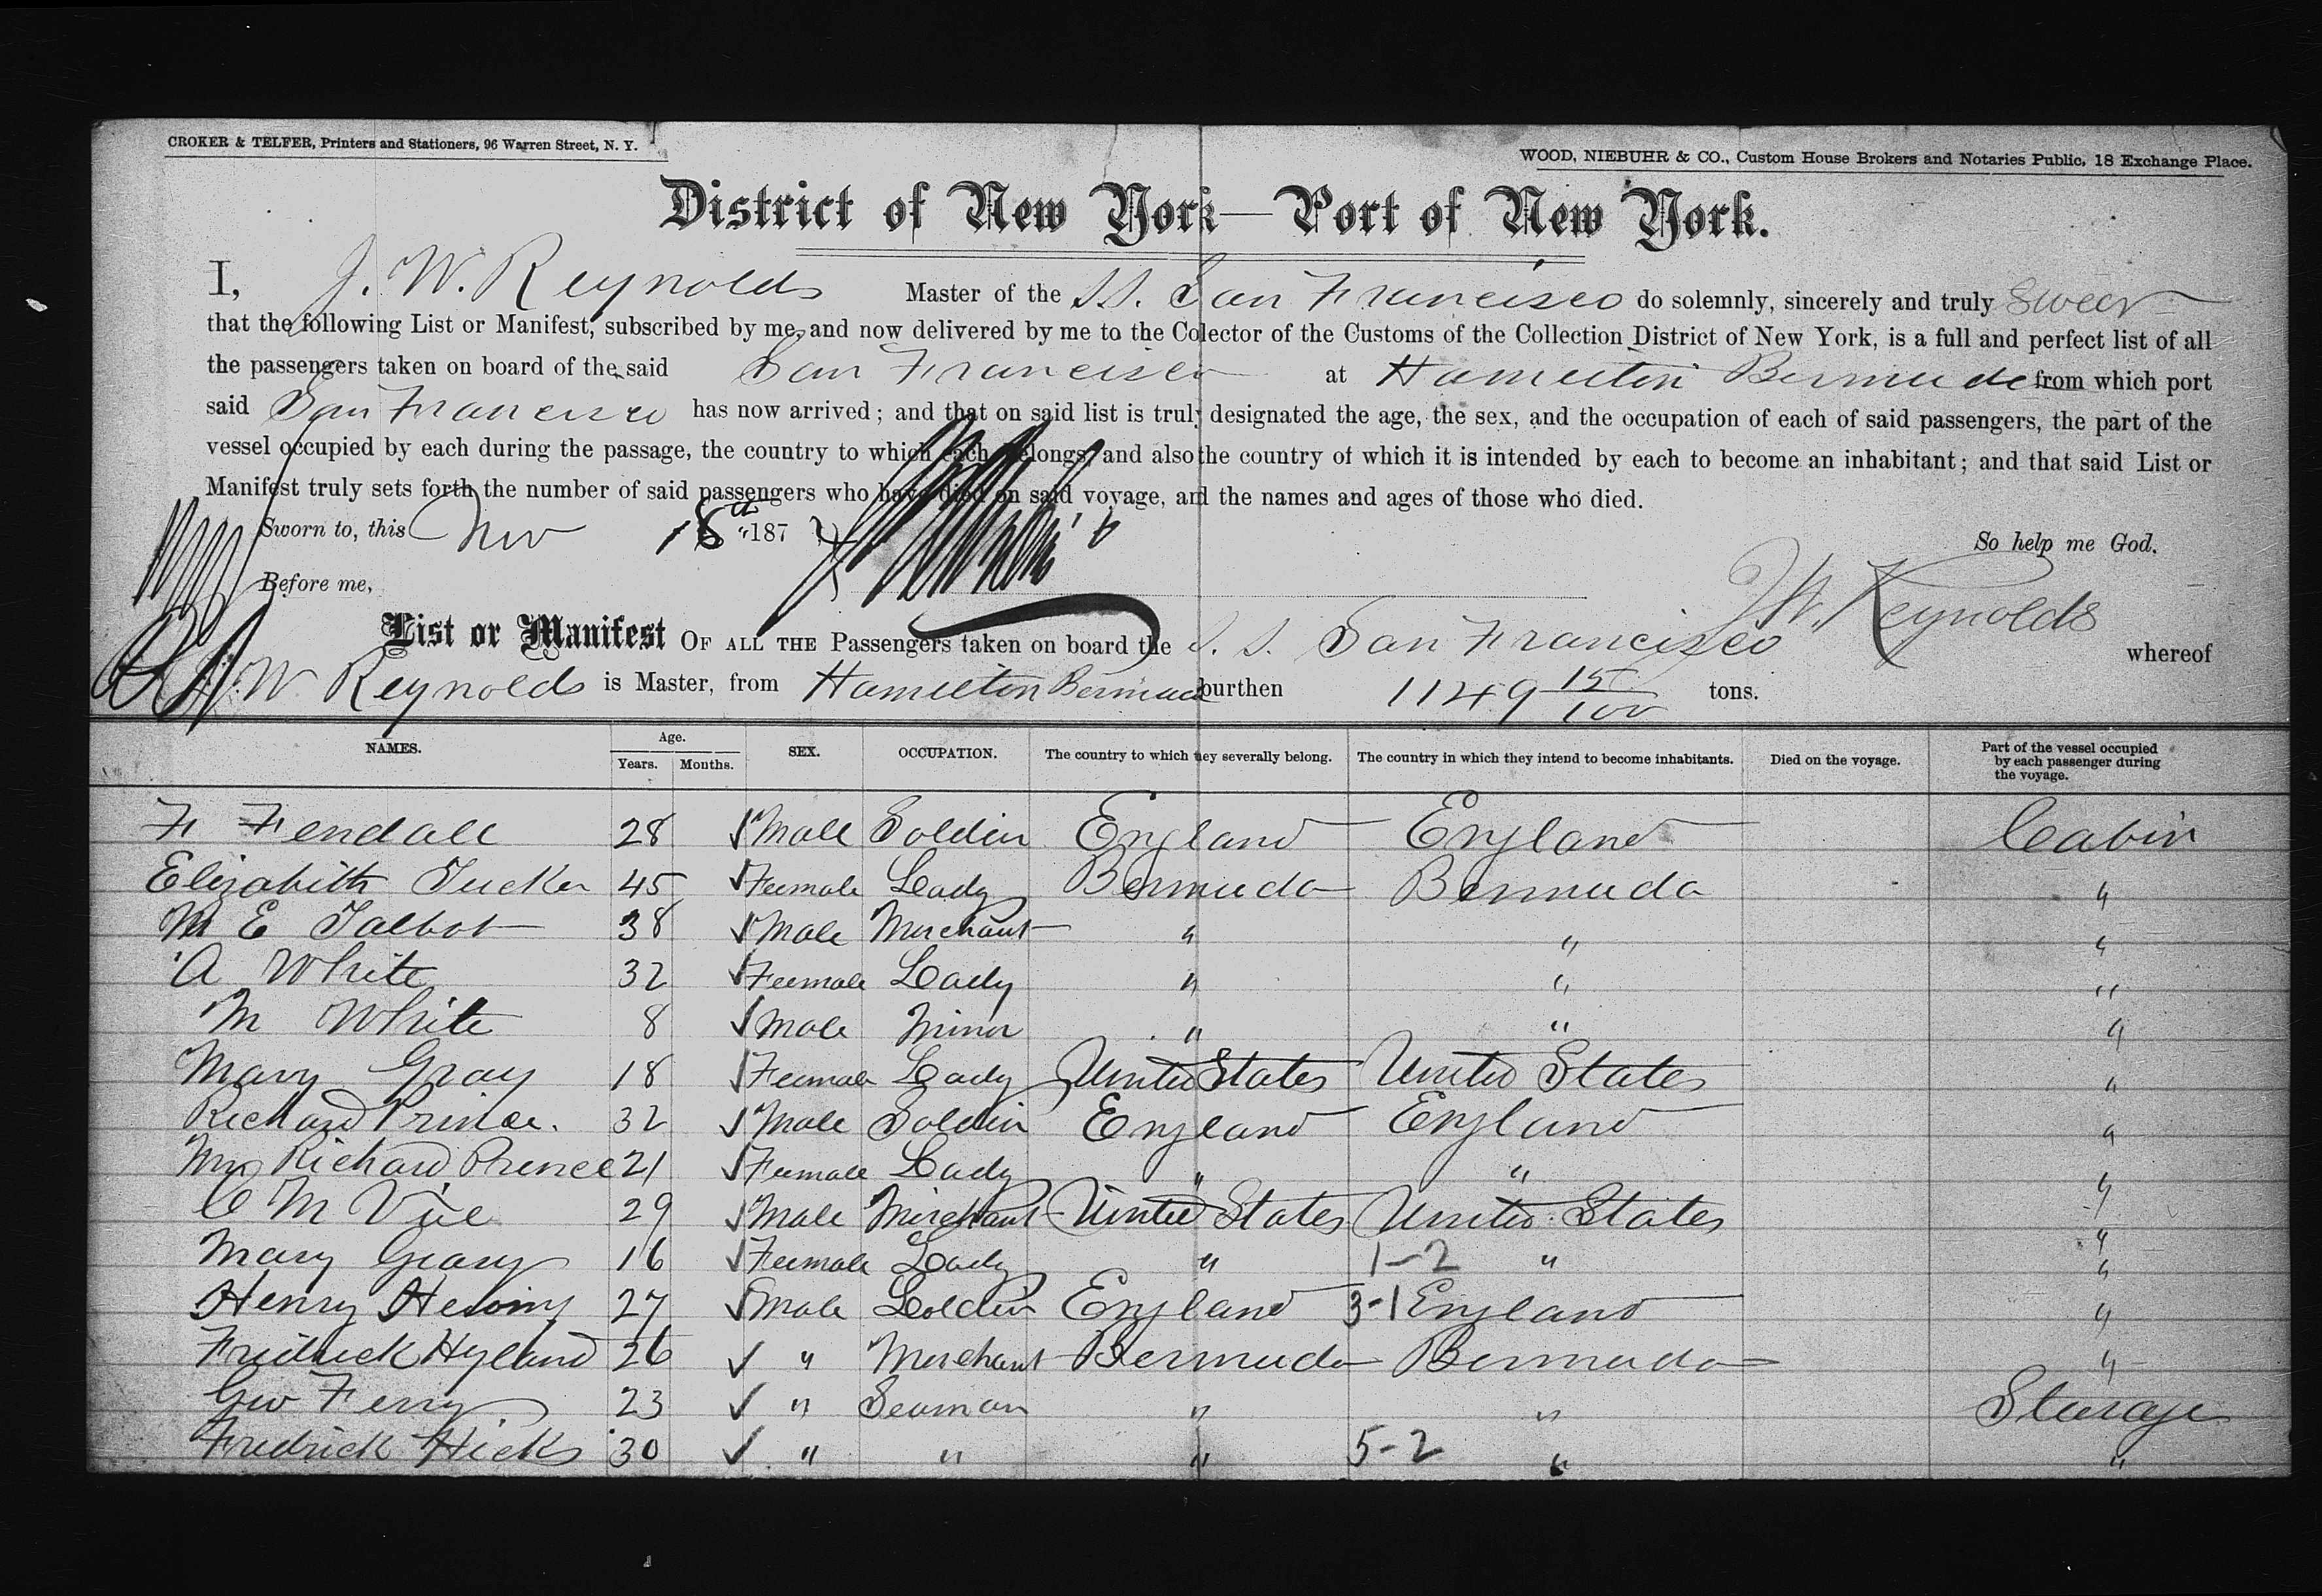 CROKER & TELFER, Printers and Stationers, 96 Warren Street, N. Y.
WOOD, NIEBUHR & CO., Custom House Brokers and Notaries Public, 18 Exchange Place.
District of New York—Port of New York.
I, J. W. Reynolds Master of the S.S. San Francisco do solemnly, sincerely and truly swear
that the following List or Manifest, subscribed by me, and now delivered by me to the Colector of the Customs of the Collection District of New York, is a full and perfect list of all
the passengers taken on board of the said San Francisco at Hamilton Bermuda from which port
said San Francisco has now arrived; and that on said list is truly designated the age, the sex, and the occupation of each of said passengers, the part of the
vessel occupied by each during the passage, the country to which each belongs, and also the country of which it is intended by each to become an inhabitant; and that said List or
Manifest truly sets forth the number of said passengers who have died on said voyage, and the names and ages of those who died.
Sworn to, this Nov 18th 187
So help me God.
Before me,
J W. Reynolds
List or Manifest OF ALL THE Passengers taken on board the S. S. San Francisco whereof
J. W Reynolds is Master, from Hamilton Bermuda burthen 1149 15/100 tons.
NAMES. Age. Years. Months. SEX. OCCUPATION. The country to which hey severally belong. The country in which they intend to become inhabitants. Died on the voyage. Part of the vessel occupied by each passenger during the voyage.
F Fendall 28 ✓ Male Soldier England England Cabin
Elizabeth Tucker 45 ✓ Female Lady Bermuda Bermuda "
M E Talbot 38 ✓ Male Merchant " " "
A White 32 ✓ Female Lady " " "
M White 8 ✓ Male Minor " " "
Mary Gray 18 ✓ Female Lady United States United States "
Richard Prince. 32 ✓ Male Soldier England England "
Mrs Richard Prince 21 ✓ Female Lady " " "
C M 29 ✓ Male Merchant United States United States "
Mary Geary 16 ✓ Female Lady " 1-2 " "
Henry 27 ✓ Male Soldier England 3-1 England "
Fredrick Hyland 26 ✓ " Merchant Bermuda Bermuda "
Geo Ferry 23 ✓ " Seaman " " Sturage
Fredrick Hicks 30 ✓ " " " 5-2 " "